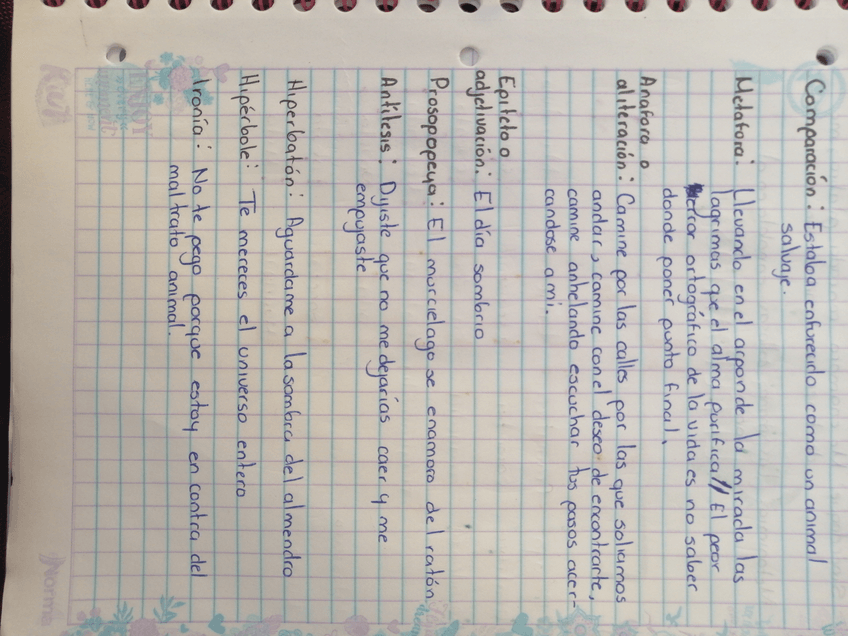 Comparación: Estaba enfurecido como un animal
salvaje.
Metafora: Llevando en el arponde la mirada las
lagrimas que el alma purifica // El peor
error ortográfico de la vida es no saber
donde poner punto final.
Anafora o
aliteración: Camine por las calles por las que soliamos
andar, camine con el deseo de encontrarte,
camine anhelando escuchar tus pasos acer-
candose a mi.
Epiteto o
adjetivación: El día sombrio
Prosopopeya: El murcielago se enamora del ratón
Antitesis: Dijiste que no me dejarías caer y me
empujaste
Hiperbatón: Aguardame a la sombra del almendro
Hipérbole: Te mereces el universo entero
Ironía: No te pego porque estoy en contra del
maltrato animal.
Norma